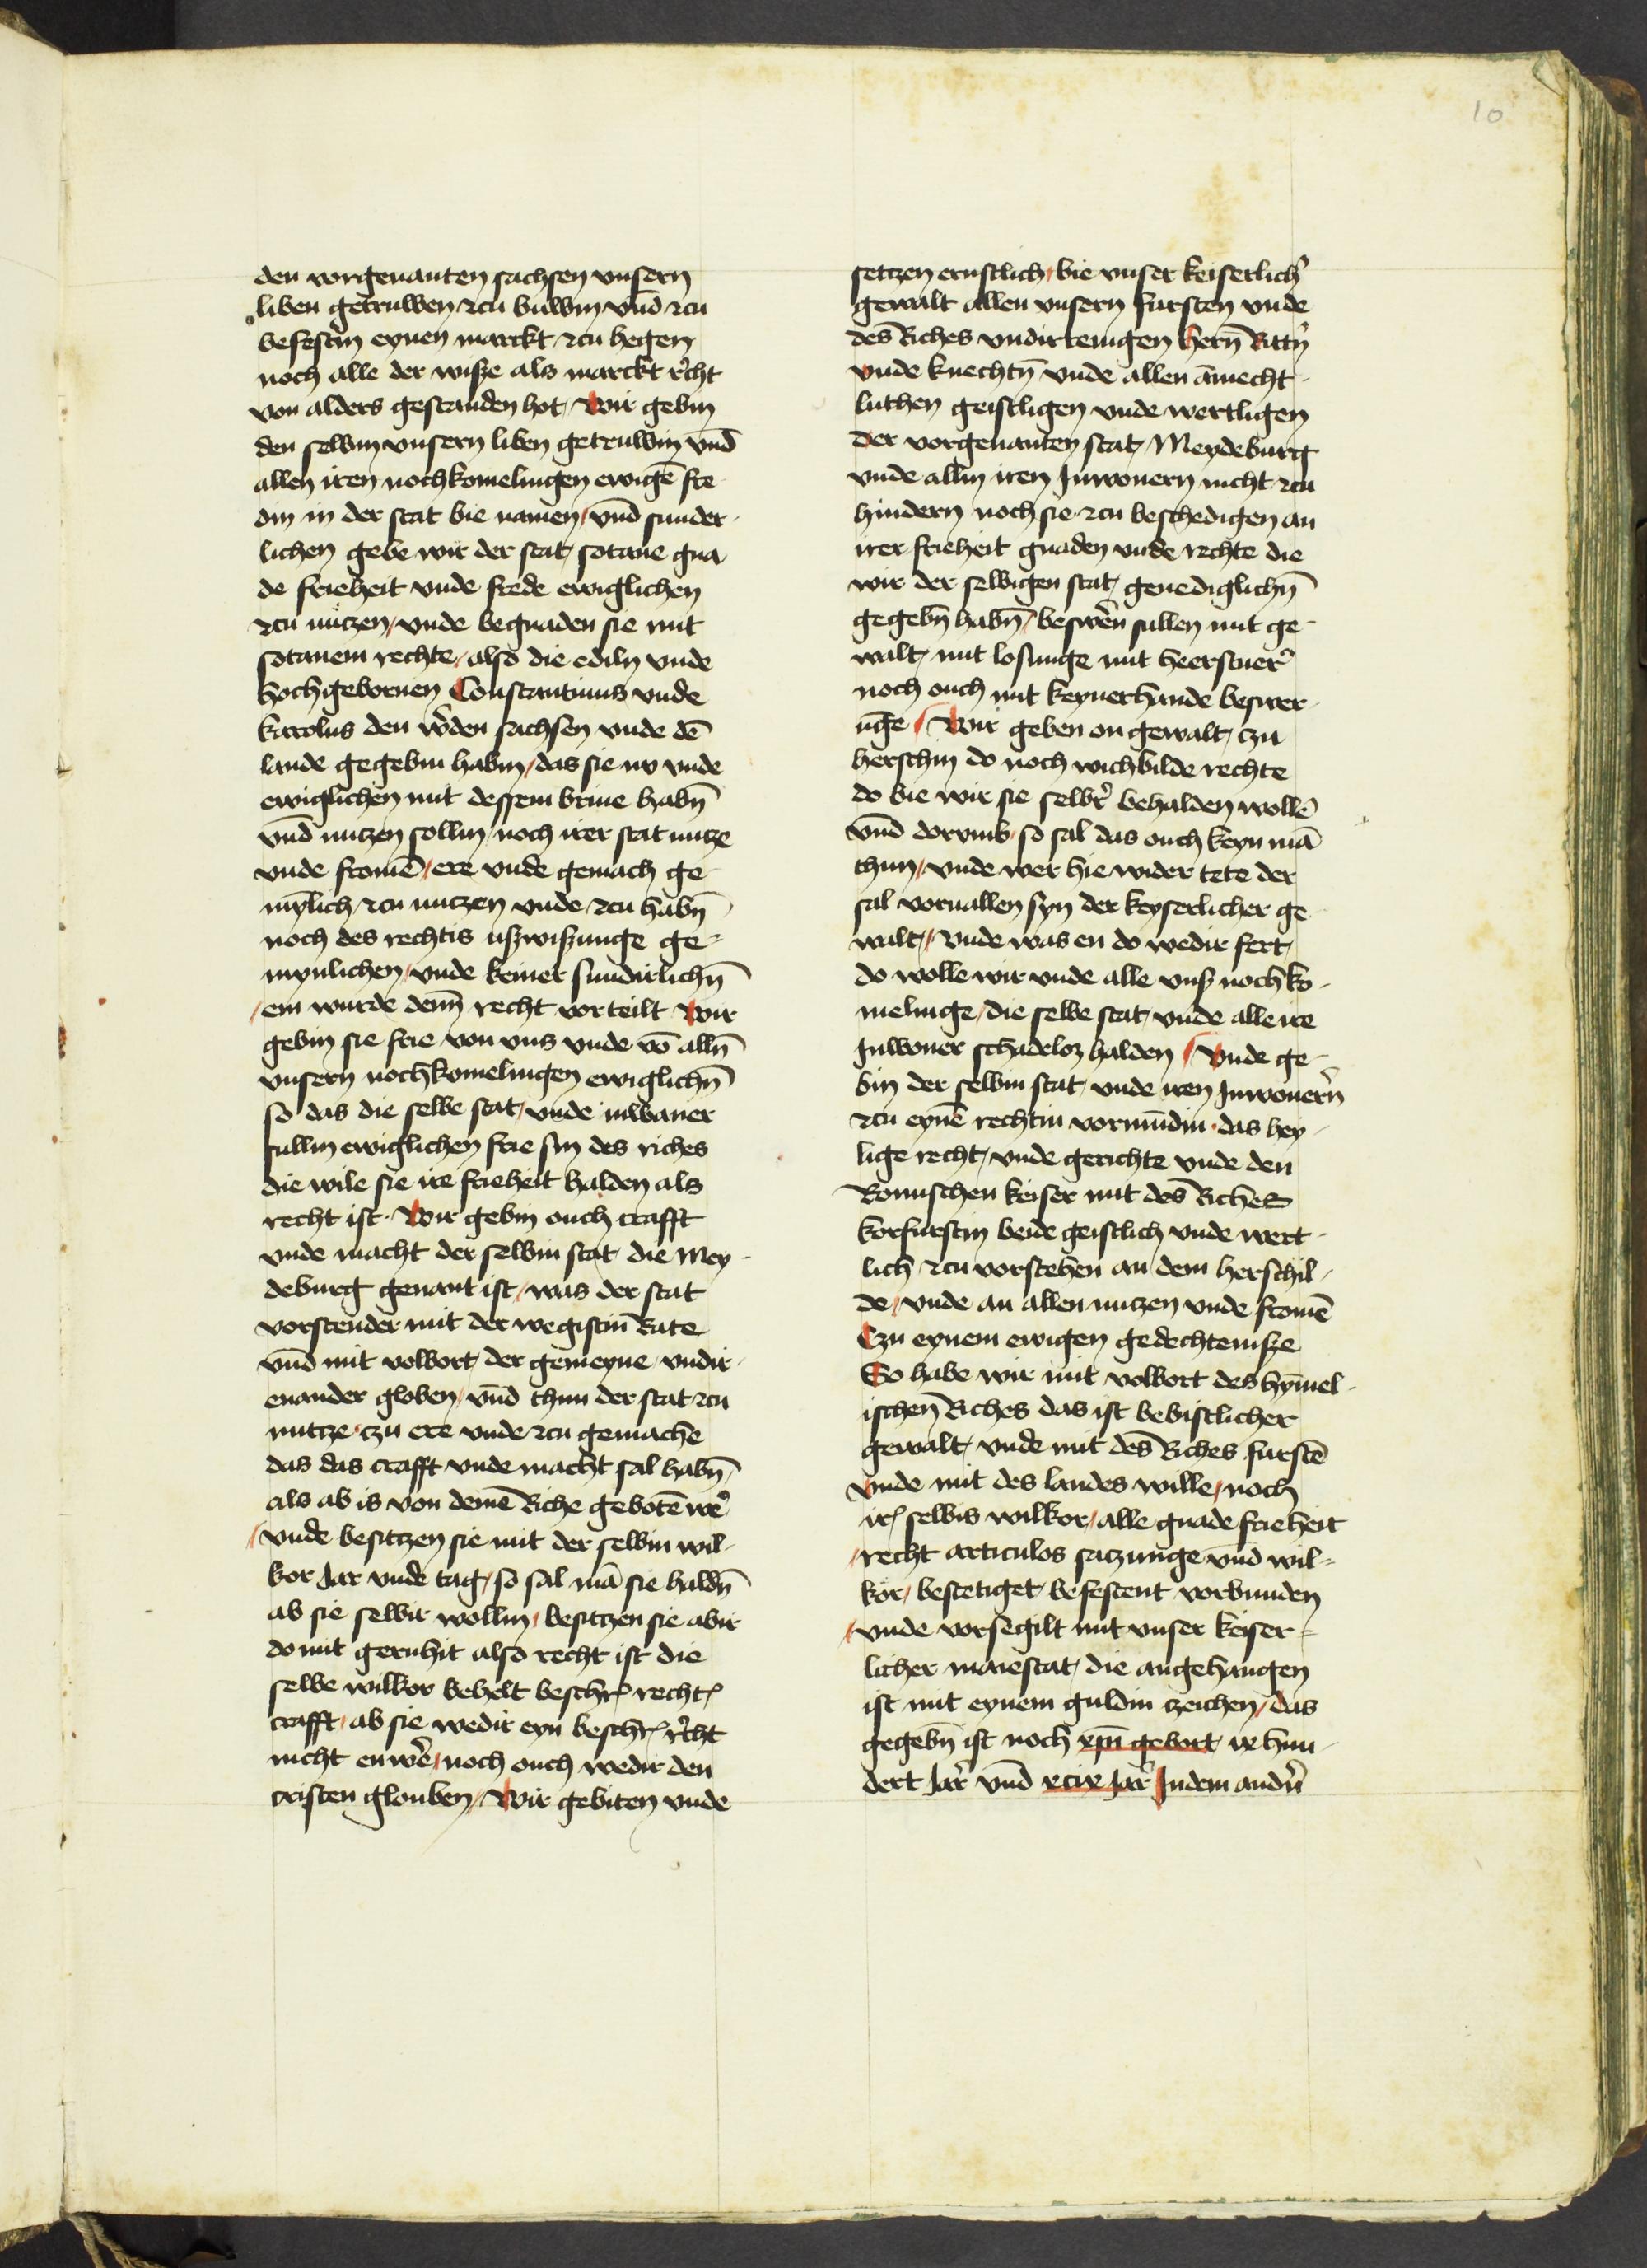 10
den vorgenanten sachsen vnsern
liben getruwen zcu buwin vnd̄ zcu
befestin eynen marckt zcu hegen
noch alle der wisze als marckt r̉cht
von alders gestanden hot / Wir gebin
den selbin vnsern liben getruwin vnd̄
allen iren nochkomelingen ewigē fre
din in der stat bie namen / vnd̄ sunder-
lichen gebe wir der stat / sotane gna
de frieheit vnde frede ewiglichen
zcu nutzen / vnde begnaden sie mit
sotanem rechte / also die ediln vnde
hochgebornen Constantinus vnde
karolus den w̉den sachsen vnde dē
lande gegebin habin / das sie nv vnde
ewiglichen mit dessem brine habn̄
vnd̄ nutzen sollin / noch irer stat nutze
vnde fromē / ere vnde gemach ge
mȳlich / zcu nutzen vnde / zcu habn̄
noch des rechtis uszwiszunge ge-
mynlichen / vnde keiner sundirlichn̄
/ em wurde denn̄ recht vorteilt Wir
gebin sie frie von vns vnde vō alln̄
vnsern nochkomelingen ewiglichn̄
so das die selbe stat / vnde inwaner
sullin ewiglichen frie sin des riches
die wile sie ire frieheit halden als
recht ist · Wir gebin ouch crafft
vnde macht der selbin stat die Mey-
deburg genant ist / was der stat
vorstender mit der wegistin̄ Rate
vnd̄ mit volbort / der gemeyne vndir-
enander globen / vnd̄ thun der stat zcu
nutcze · czu ere vnde zcu gemache
das das crafft vnde macht sal habn̄ /
als ab is von demē Riche gebotē we̾
/ vnde besitczen sie mit der selbin wil-
kor Jar vnde tag / so sal mā sie haldn̄
ab sie selbir wollin / besitczen sie abir
domit geruhit also recht ist die
selbe wilkor behelt beschr̾ recht̾
crafft / ab sie wedir eyn beschr̾ r̉cht
nicht enwe̾ / noch ouch wedir den
cristen glouben / Wir gebiten vnde
setczen ernstlich / bie vnser keiserlich̾
gewalt allen vnsern fursten vnde
des Riches vndirtenigen hern̄ Rittn̾
vnde knechtn̄ vnde allen āmecht-
luthen geistligen vnde wertligen
der vorgenanten stat / Meydeburg
vnde allin iren Inwonern nicht zcu
hindern noch sie zcu beschedigen an
irer frieheit gnaden vnde rechte die
wir der selbigen stat / genediglichn̄
gegebn̄ habn̄ / beswe̾n sullen mit ge-
walt / mit losunge mit heerstuer̾
noch ouch mit keynerhande beswer-
ūge / Wir geben on gewalt / czu
herschin do noch wichbilde rechte
do bie wir sie selbr̾ behalden wollē
vnd̄ dorvmb · so sal das ouch keyn mā
thun / vnde wer hie wider tete der
sal voruallen syn der keyserlicher ge
walt // vnde was en do wedir fert /
do wolle wir vnde alle vns̾ nochko-
melinge / die selbe stat / vnde alle ire
Inwoner schadeloz halden / Vnde ge-
bin der selbin stat / vnde iren Inwonern̾
zcu eynē rechtin vormūdin · das hey-
lige recht / vnde gerichte vnde den
Romischen keiser mit des Riches
korfurstin beide geistlich vnde wert-
lich zcu vorstehen an dem herschil-
de / vnde an allen nutzen vnde fromē
Czu eynem ewigen gedechtenisze
So habe wir mit volbort des hȳmel-
ischen Riches das ist bebistlicher
gewalt / vnde mit des Riches furstē
vnde mit des landes wille / noch
ir̾ selbis wilkor / alle gnade frieheit
/ recht articulos satzunge vnd̄ wil-
kor / bestetiget / befestent vorbunden
/ vnde vorsegilt mit vnser keiser-
licher maiestat / die angehangen
ist mit eynem guldin zeichen / das
gegebn̄ ist noch xpn̄ gebort / ix hun-
dert Jar̾ vnd̄ xcix Jar̾ Indem andn̾